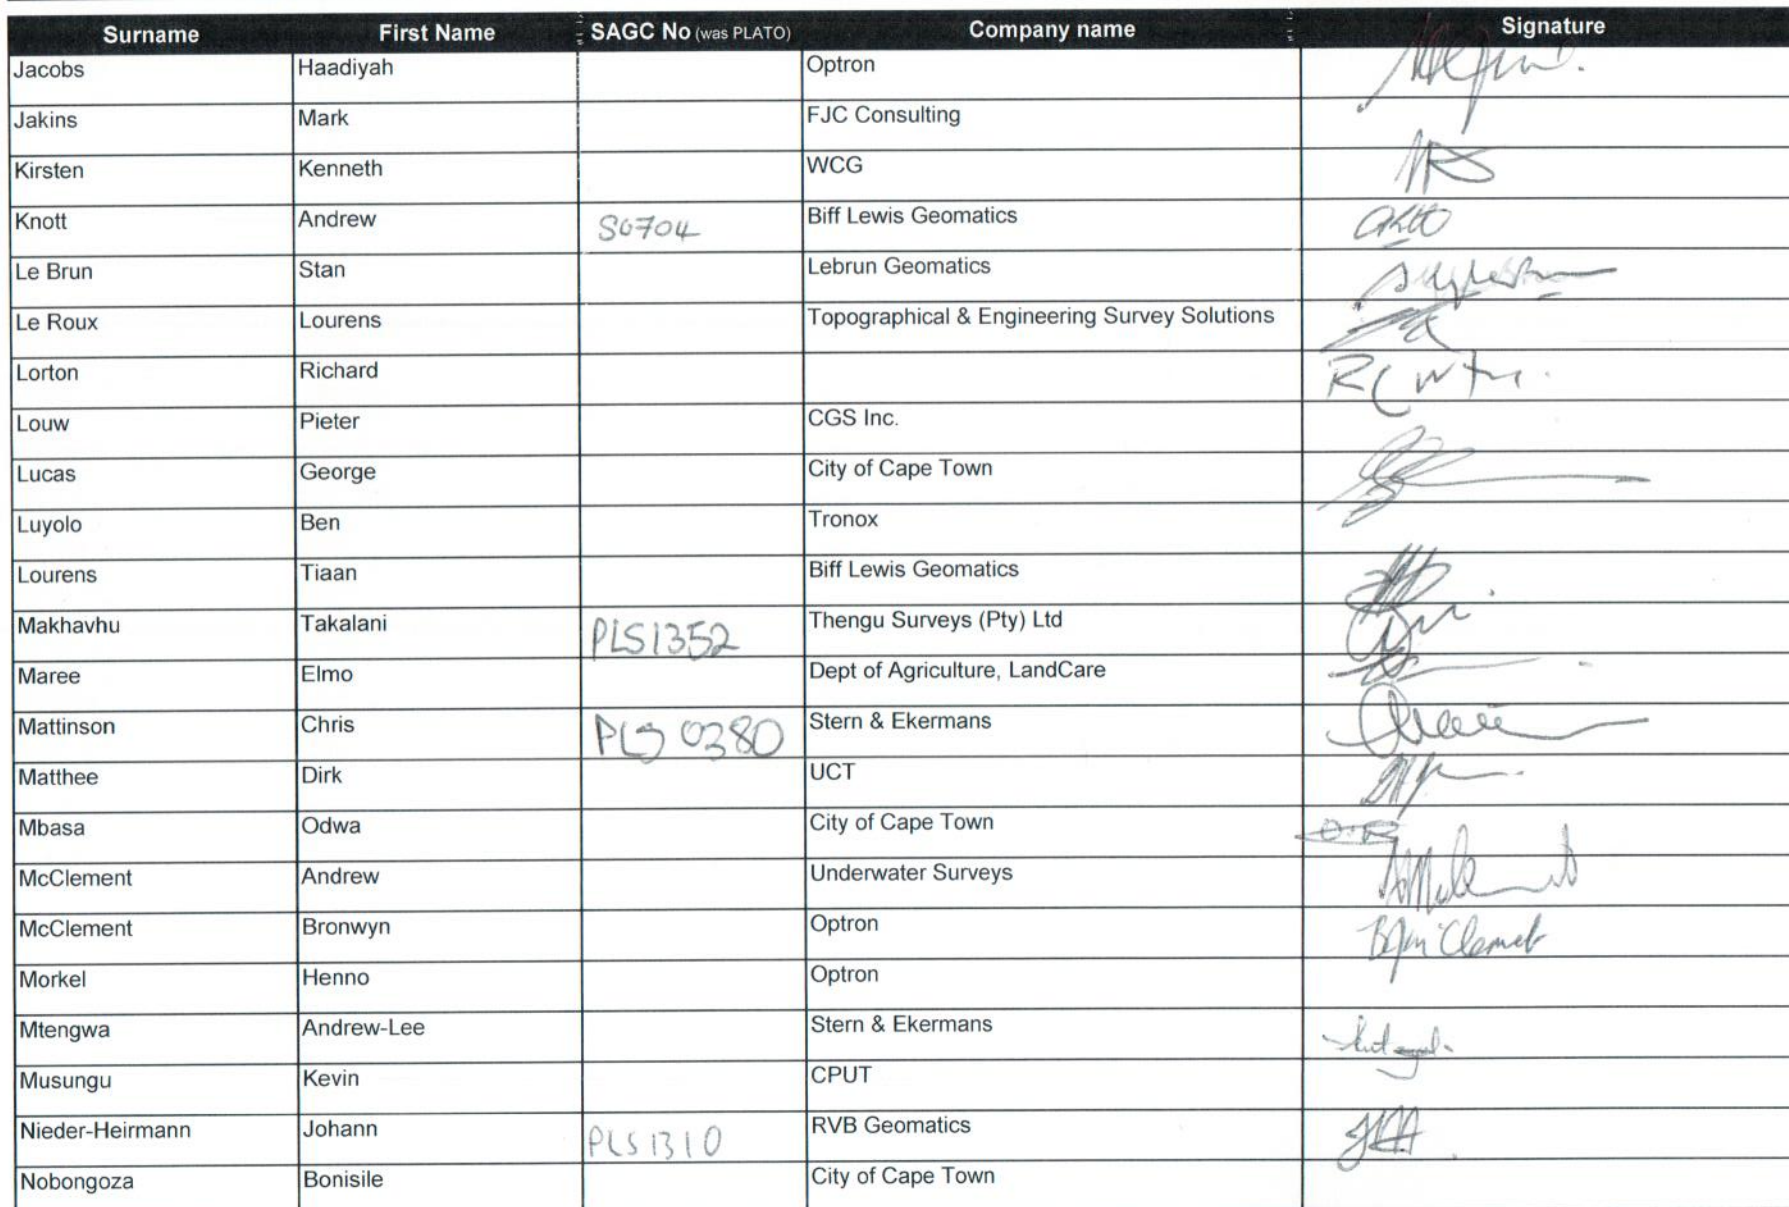 Surname First Name SAGC No (was PLATO) Company name Signature
Jacobs Haadiyah Optron
Jakins Mark FJC Consulting
Kirsten Kenneth WCG
Knott Andrew SG704 Biff Lewis Geomatics
Le Brun Stan Lebrun Geomatics
Le Roux Lourens Topographical & Engineering Survey Solutions
Lorton Richard
Louw Pieter CGS Inc.
Lucas George City of Cape Town
Luyolo Ben Tronox
Lourens Tiaan Biff Lewis Geomatics
Makhavhu Takalani PLS1352 Thengu Surveys (Pty) Ltd
Maree Elmo Dept of Agriculture, LandCare
Mattinson Chris PLS 0380 Stern & Ekermans
Matthee Dirk UCT
Mbasa Odwa City of Cape Town
McClement Andrew Underwater Surveys
McClement Bronwyn Optron
Morkel Henno Optron
Mtengwa Andrew-Lee Stern & Ekermans
Musungu Kevin CPUT
Nieder-Heirmann Johann PLS1310 RVB Geomatics
Nobongoza Bonisile City of Cape Town